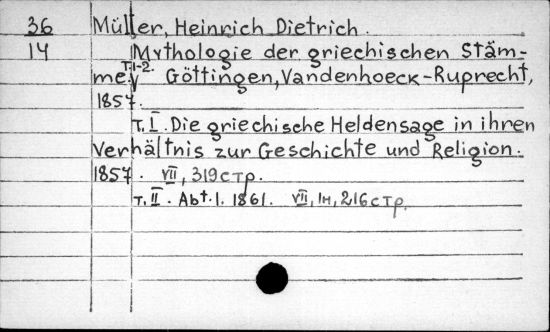 36 Müller, Heinrich Dietrich.
14 Mythologie der griechischen Stäm-
me. T.1-2. Göttingen, Vandenhoeck-Ruprecht,
1857.
T. I. Die griechische Heldensage in ihren
Verhältnis zur Geschichte und Religion.
1857. VII, 319 стр.
т. II. Abt. 1. 1861. VII, 1н, 216 стр.